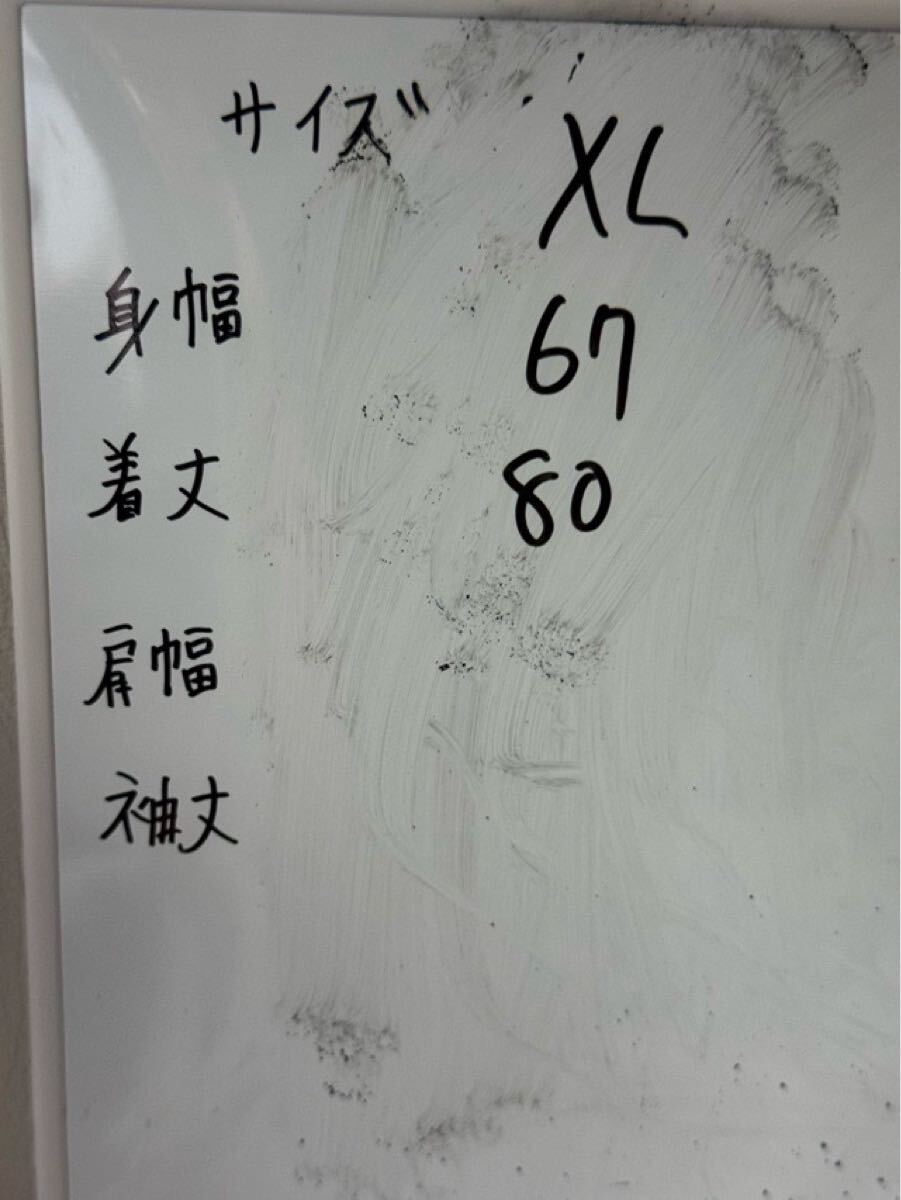 サイズ XL
身幅 67
着丈 80
肩幅
袖丈